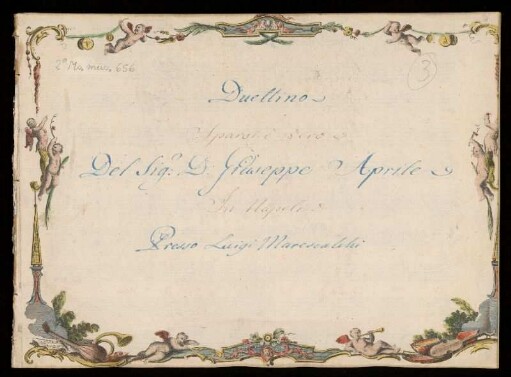 2° Ma mus. 656
3
Duettino
Sparati è vero
Del Sig.r D. Giuseppe Aprile
In Napoli
Presso Luigi Marescalchi